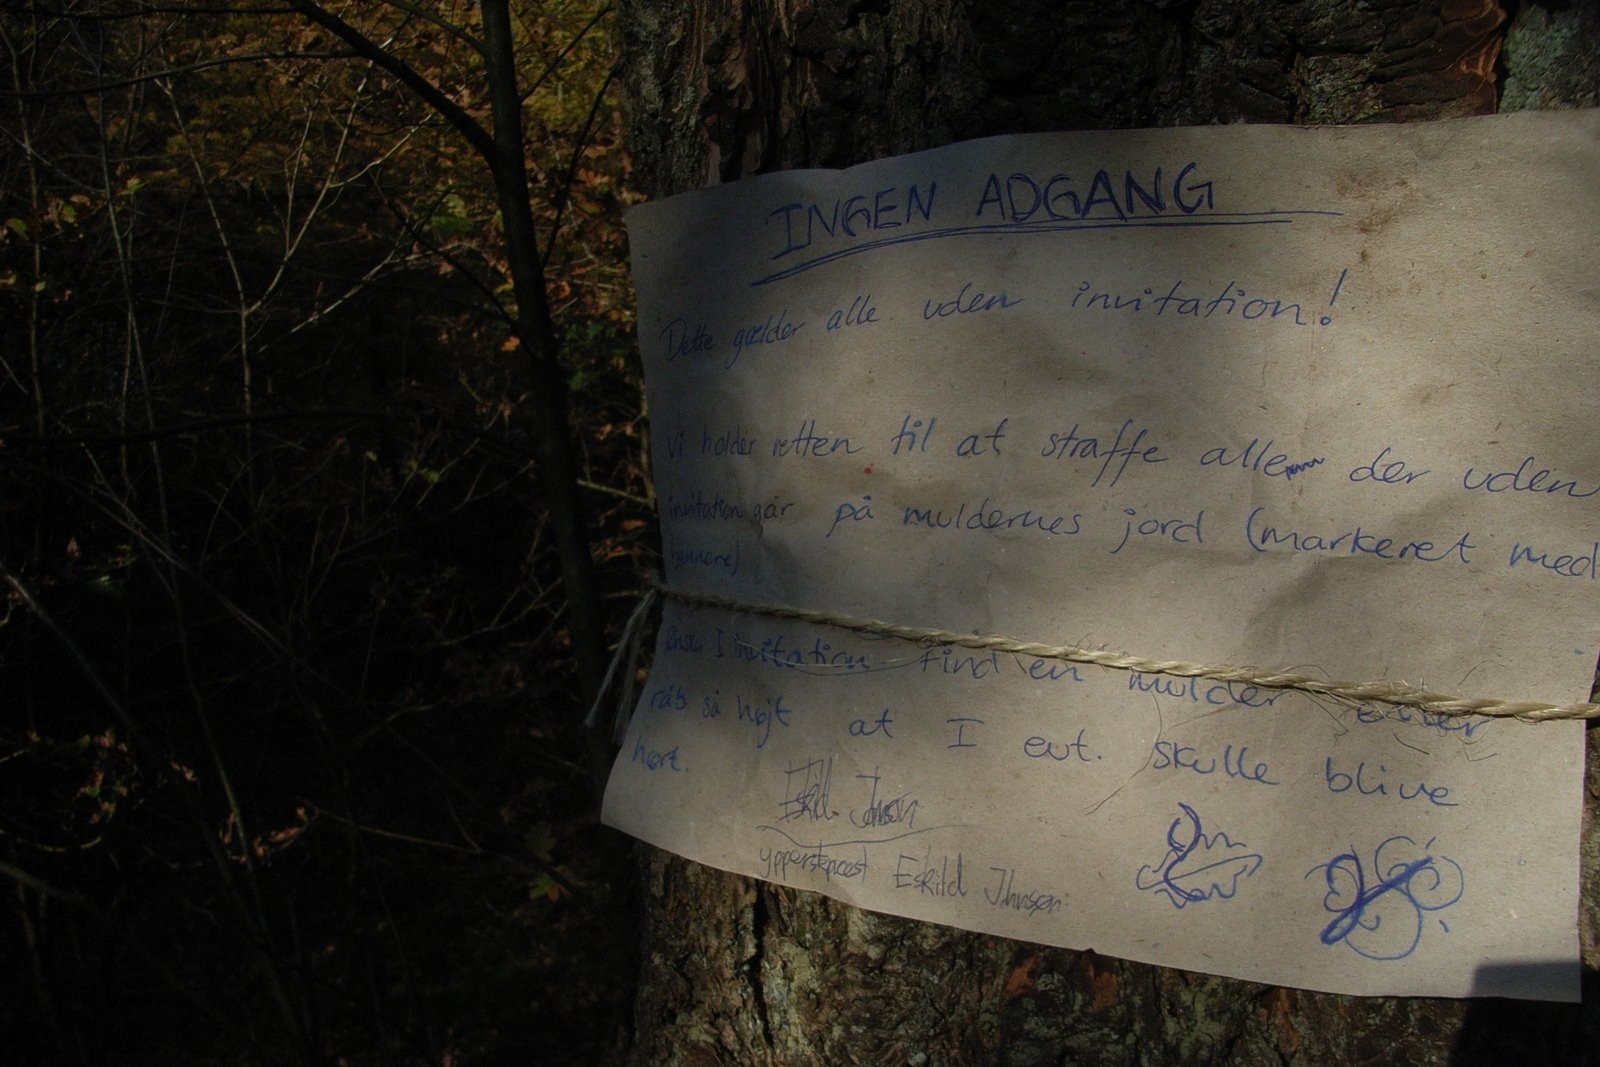 INGEN ADGANG
Dette gælder alle uden invitation!
Vi holder retten til at straffe alle der uden
invitation går på muldernes jord (markeret med
bannere)
Ønsker I invitation find en mulder eller
råb så højt at I evt. skulle blive
hørt.
Eskild Johnson
ypperstepræst Eskild Johnsen